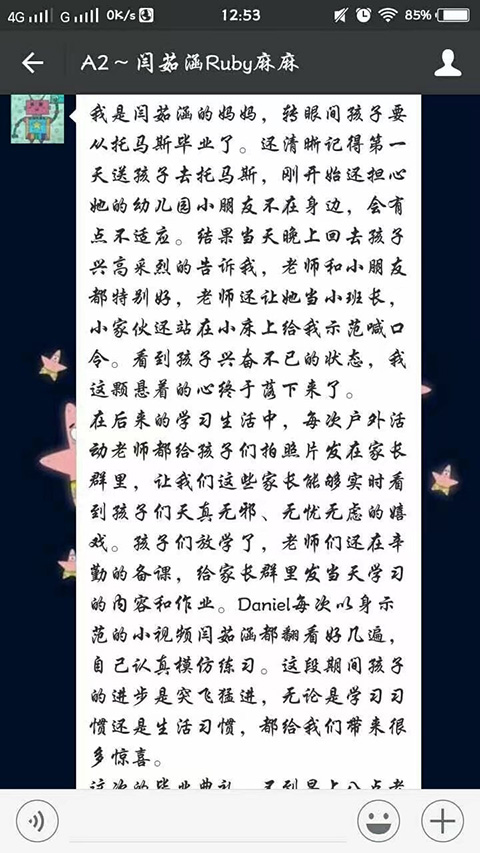 4G G 0K/s 12:53 85%
A2～闫茹涵Ruby麻麻
我是闫茹涵的妈妈，转眼间孩子要
从托马斯毕业了。还清晰记得第一
天送孩子去托马斯，刚开始还担心
她的幼儿园小朋友不在身边，会有
点不适应。结果当天晚上回去孩子
兴高采烈的告诉我，老师和小朋友
都特别好，老师还让她当小班长，
小家伙还站在小床上给我示范喊口
令。看到孩子兴奋不已的状态，我
这颗悬着的心终于落下来了。
在后来的学习生活中，每次户外活
动老师都给孩子们拍照片发在家长
群里，让我们这些家长能够实时看
到孩子们天真无邪、无忧无虑的嬉
戏。孩子们放学了，老师们还在辛
勤的备课，给家长群里发当天学习
的内容和作业。Daniel每次以身示
范的小视频闫茹涵都翻看好几遍，
自己认真模仿练习。这段期间孩子
的进步是突飞猛进，无论是学习习
惯还是生活习惯，都给我们带来很
多惊喜。
这次的毕业典礼，不到早上八点老